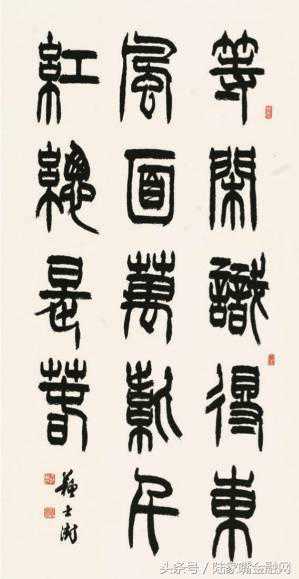 等閑識得東
風面萬紫千
紅總是春
蘇士澍
头条号 / 陆家嘴金融网